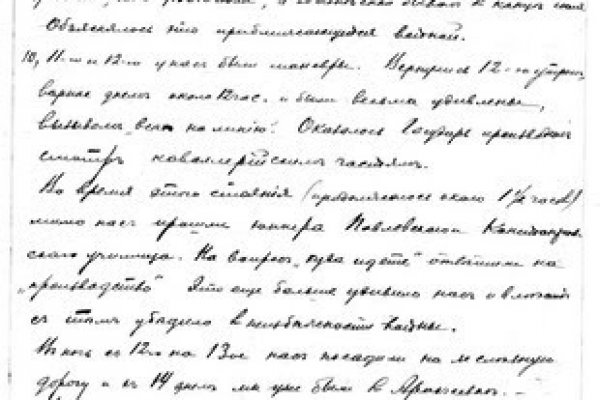 Объяснялось это приближающейся войной.
10, 11-го и 12-го у нас были маневры. Вернулись 12-го утром,
вернее днем около 12 час. и были весьма удивлены,
вызовом „всех на линию“. Оказалось Государь производил
смотр кавалерийским частям.
Во время этого стояния (продолжалось около 1½ часов)
мимо нас прошли юнкера Павловского
ского училища. На вопрос „куда идете“ отвечали на
„производство“ Это еще больше удивило нас и
с тем убедило в неизбежности войны.
В ночь с 12го на 13ое нас посадили на железную
дорогу и в 14 днем мы уже были в